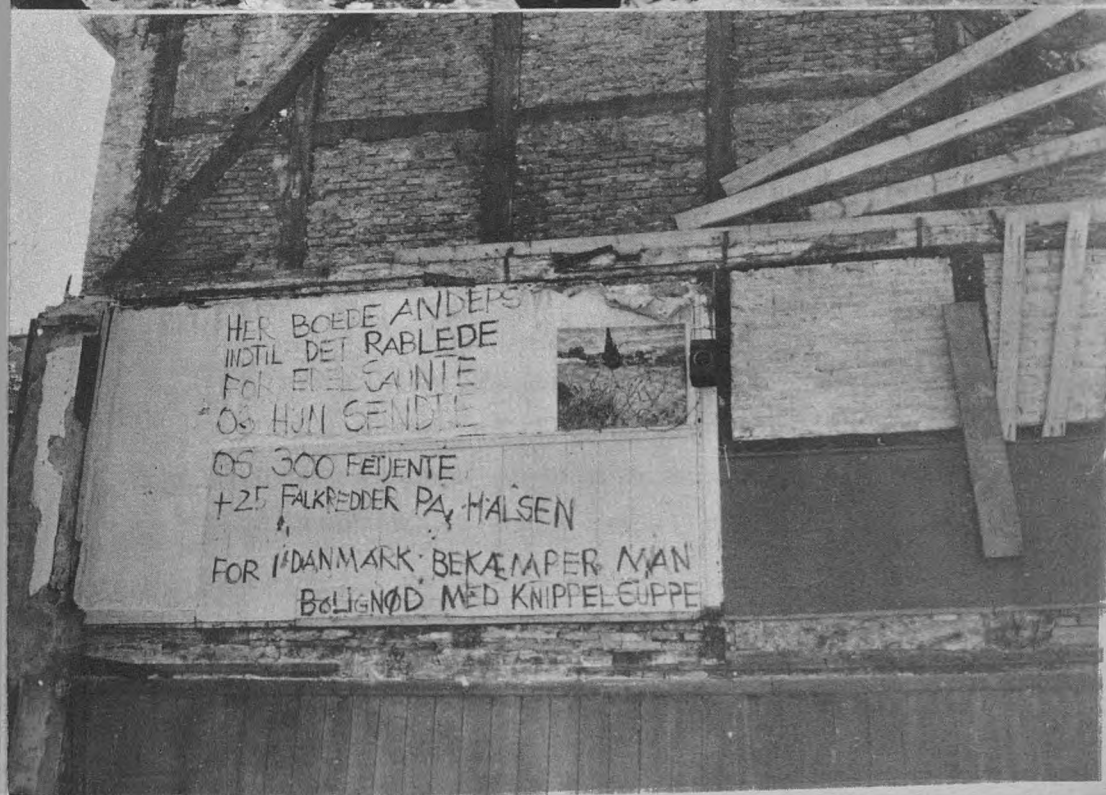 HER BOEDE ANDERS
INDTIL DET RABLEDE
FOR EDEL SAUNTE
OG HUN SENDTE
OS 300 BETJENTE
+25 FALKREDDER PÅ HALSEN
FOR I DANMARK BEKÆMPER MAN
BOLIGNØD MED KNIPPELSUPPE